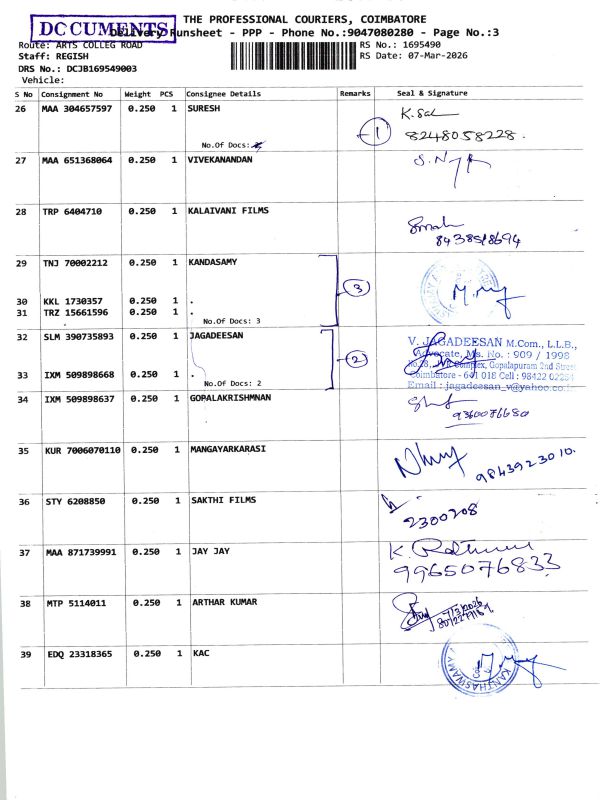 THE PROFESSIONAL COURIERS, COIMBATORE
DOCUMENTS
Delivery Runsheet - PPP - Phone No.:9047080280 - Page No.:3
Route: ARTS COLLEG ROAD
RS No.: 1695490
Staff: REGISH
RS Date: 07-Mar-2026
DRS No.: DCJB169549003
Vehicle:
S No Consignment No Weight PCS Consignee Details Remarks Seal & Signature
26 MAA 304657597 0.250 1 SURESH
No.Of Docs:
1
8248058228.
27 MAA 651368064 0.250 1 VIVEKANANDAN
28 TRP 6404710 0.250 1 KALAIVANI FILMS
29 TNJ 70002212 0.250 1 KANDASAMY
3
30 KKL 1730357 0.250 1 .
31 TRZ 15661596 0.250 1 .
No.Of Docs: 3
32 SLM 390735893 0.250 1 JAGADEESAN
2
V. JAGADEESAN M.Com., L.L.B.,
Advocate, Ms. No. : 909 / 1998
Complex, Gopalapuram 2nd Street
33 IXM 509898668 0.250 1 .
Coimbatore - 641 018 Cell : 98422
No.Of Docs: 2
Email : jagadeesan_v@yahoo.co.in
34 IXM 509898637 0.250 1 GOPALAKRISHMNAN
9360076680
35 KUR 7006070110 0.250 1 MANGAYARKARASI
9843923010.
36 STY 6208850 0.250 1 SAKTHI FILMS
2300208
37 MAA 871739991 0.250 1 JAY JAY
9965076833
38 MTP 5114011 0.250 1 ARTHAR KUMAR
39 EDQ 23318365 0.250 1 KAC